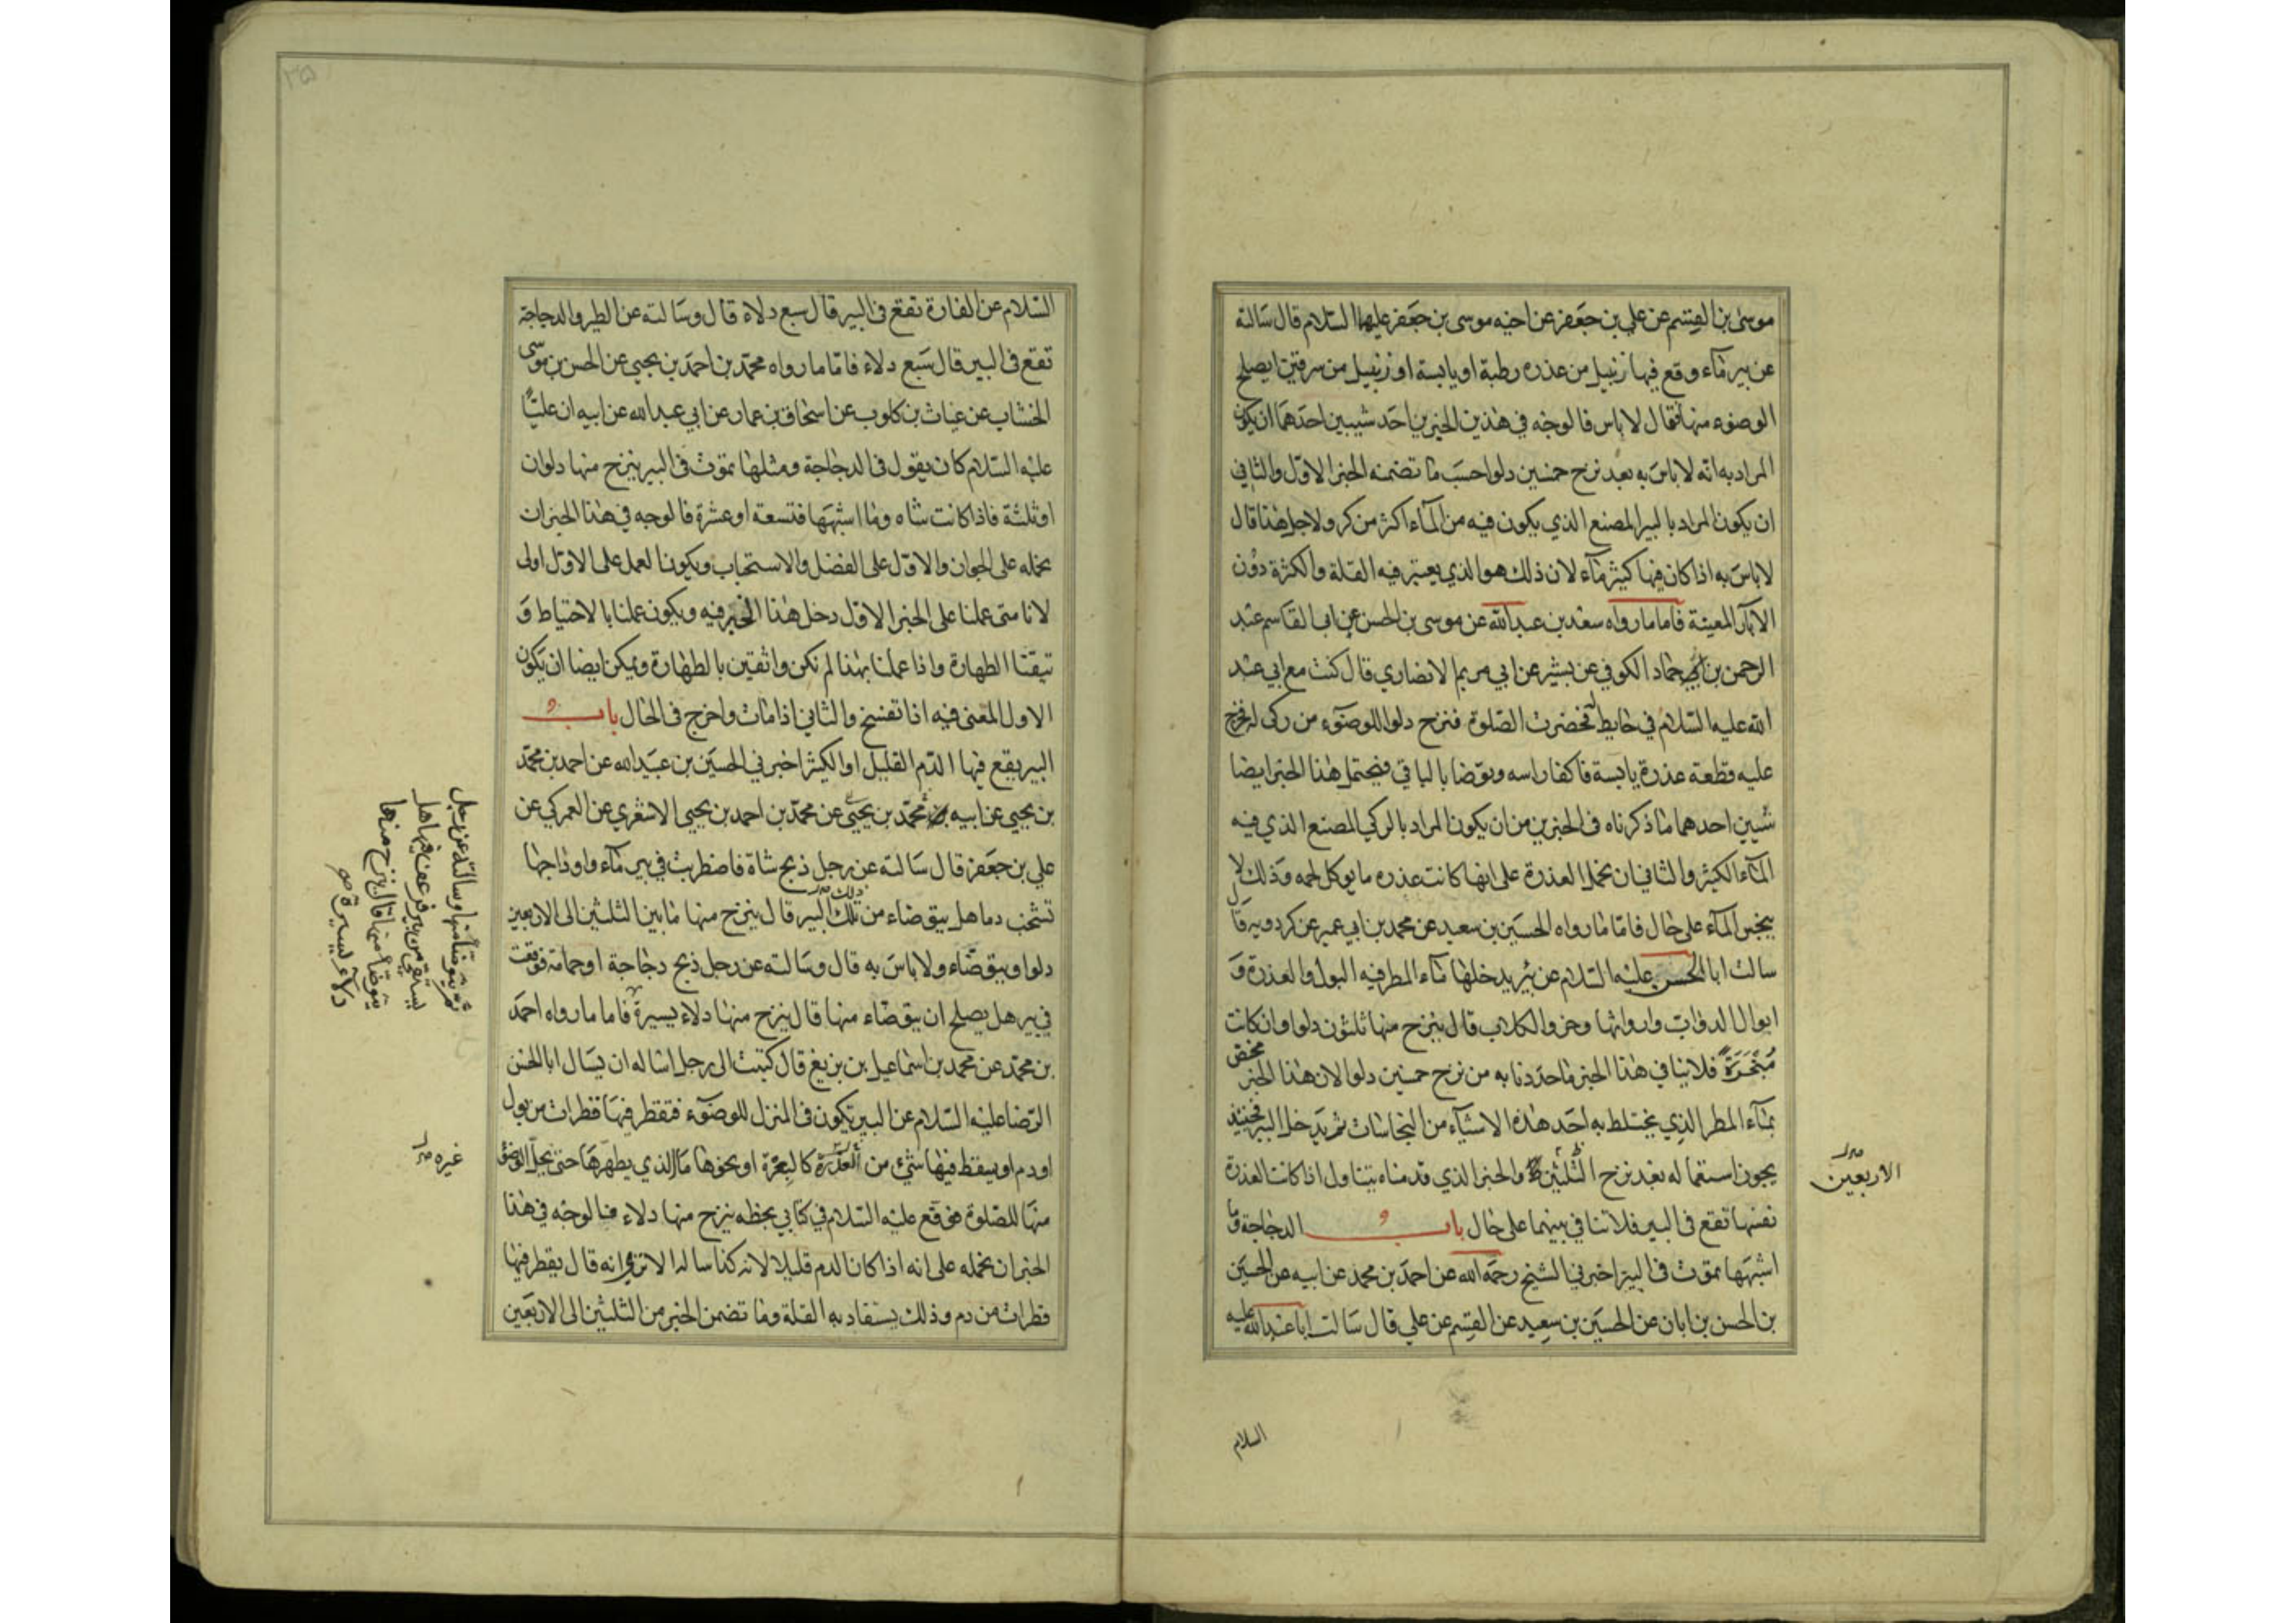 موسى بن القسم عن علي بن جعفر عن اخيه موسى بن جعفر عليهما السلام قال سالته
عن بير ماء وقع فيها زنبيل من عذره رطبة او يابسة او زنبيل من سرقين ايصلح
الوضوء منها فقال لا باس فالوجه في هذين الخبرين احد شيئين احدهما ان يكون
المراد به انه لا باس به بعد نزح خمسين دلوا حسب ما تضمنه الخبر الاول والثاني
ان يكون المراد بالبير المصنع الذي يكون فيه من الماء اكثر من كر ولاجل هذا قال
لا باس به اذا كان فيها كثير ماء لان ذلك هو الذي يعتبر فيه القلة والكثرة دون
الآبار المعينة فاما ما رواه سعد بن عبد الله عن موسى بن الحسن عن ابي القاسم عبد
الرحمن بن ابي حماد الكوفي عن بشير عن ابي مريم الانصاري قال كنت مع ابي عبد
الله عليه السلام في حايط له فحضرت الصلوة فنزح دلوا للوضوء من ركي له فخرج
عليه قطعة عذرة يابسة فاكفا راسه وتوضا بالباقي فيحتمل هذا الخبر ايضا
شيئين احدهما ما ذكرناه في الخبرين من ان يكون المراد بالركي المصنع الذي فيه
الماء الكثير والثاني ان نحمل العذرة على انها كانت عذره ما يوكل لحمه وذلك لا
ينجس الماء على حال فاما ما رواه الحسين بن سعيد عن محمد بن ابي عمير عن كردويه قال
سالت ابا الحسن عليه السلام عن بئر يدخلها ماء المطر فيه البول والعذرة و
ابوال الدواب وارواثها وخرو الكلاب قال ينزح منها ثلثون دلوا وان كانت
مبخرة فلا ينافي هذا الخبر ما حددنا به من نزح خمسين دلوا لان هذا الخبر مختص
بماء المطر الذي يختلط به احد هذه الاشياء من النجاسات ثم يدخل البير فحينئذ
يجوز استعماله بعد نزح الثلثين والخبر الذي قدمناه يتناول اذا كانت العذرة
نفسها تقع في البير فلا تنافي بينهما على حال باب الدجاجة وما
اشبهها تموت في البير اخبرني الشيخ رحمه الله عن احمد بن محمد عن ابيه عن الحسين
بن الحسن بن ابان عن الحسين بن سعيد عن القسم عن علي قال سالت ابا عبد الله عليه
الاربعين
السلام
السلام عن الفارة تقع في البير قال سبع دلاء قال وسالته عن الطير والدجاجة
تقع في البير قال سبع دلاء فاما ما رواه محمد بن احمد بن يحيى عن الحسن بن موسى
الخشاب عن غياث بن كلوب عن اسحاق بن عمار عن ابي عبد الله عن ابيه ان عليا
عليه السلام كان يقول في الدجاجة ومثلها تموت في البير ينزح منها دلوان
او ثلثة فاذا كانت شاه وما اشبهها فتسعة او عشرة فالوجه في هذا الخبر ان
نحمله على الجواز والاول على الفضل والاستحباب ويكون العمل على الاول اولى
لانا متى عملنا على الخبر الاول دخل هذا الخبر فيه ويكون عملنا بالاحتياط و
تيقنا الطهارة واذا عملنا بهذا لم نكن واثقين بالطهارة ويمكن ايضا ان يكون
الاول المعنى فيه اذا تفسخ والثاني اذا مات واخرج في الحال باب
البير يقع فيها الدم القليل او الكثير اخبرني الحسين بن عبيد الله عن احمد بن محمد
بن يحيى عن ابيه محمد بن يحيى عن محمد بن احمد بن يحيى الاشعري عن العمركي عن
علي بن جعفر قال سالته عن رجل ذبح شاة فاضطربت في بير ماء واوداجها
تشخب دما هل يتوضاء من تلك البير قال ينزح منها ما بين الثلثين الى الاربعين
دلوا ويتوضاء ولا باس به قال وسالته عن رجل ذبح دجاجة او حمامة فوقعت
في بير هل يصلح ان يتوضاء منها قال ينزح منها دلاء يسيرة فاما ما رواه احمد
بن محمد عن محمد بن اسماعيل بن بزيغ قال كتبت الى رجل اساله ان يسال ابا الحسن
الرضا عليه السلام عن البير تكون في المنزل للوضوء فتقطر فيها قطرات من بول
او دم او يسقط فيها شيء من العذرة كالبعرة او نحوها ما الذي يطهرها حتى يحل الوضوء
منها للصلوة فوقع عليه السلام في كتابي بخطه ينزح منها دلاء فالوجه في هذا
الخبر ان نحمله على انه اذا كان الدم قليلا لانه كذا ساله الا ترى انه قال يقطر فيها
قطرات من دم وذلك يستفاد به القلة وما تضمن الخبر من الثلثين الى الاربعين
ثم يتوضا منها وسالته عن رجل
يستقي من بير فرعف فيها هل
يتوضا منها قال ينزح منها
دلاء يسيرة
غيره